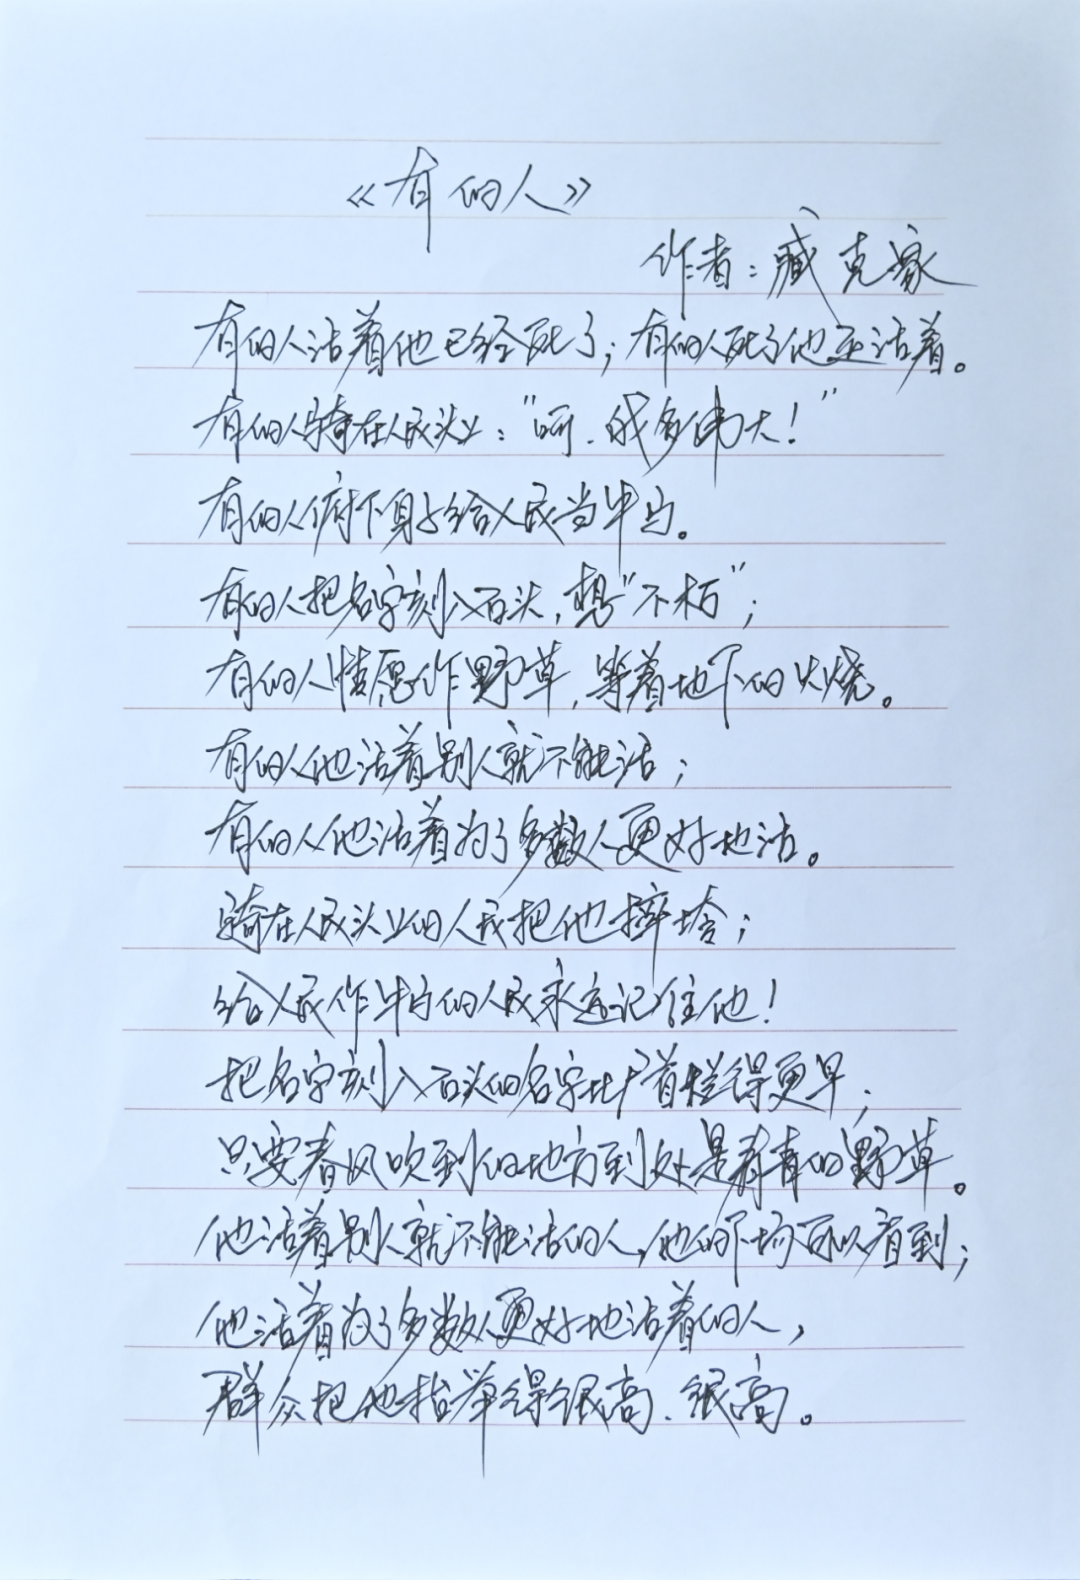 《有的人》
作者：臧克家
有的人活着他已经死了；有的人死了他还活着。
有的人骑在人民头上：“呵，我多伟大！”
有的人俯下身子给人民当牛马。
有的人把名字刻入石头，想“不朽”；
有的人情愿作野草，等着地下的火烧。
有的人他活着别人就不能活；
有的人他活着为了多数人更好地活。
骑在人民头上的人民把他摔垮；
给人民作牛马的人民永远记住他！
把名字刻入石头的名字比尸首烂得更早；
只要春风吹到的地方到处是青青的野草。
他活着别人就不能活的人，他的下场可以看到；
他活着为了多数人更好地活着的人，
群众把他抬举得很高、很高。